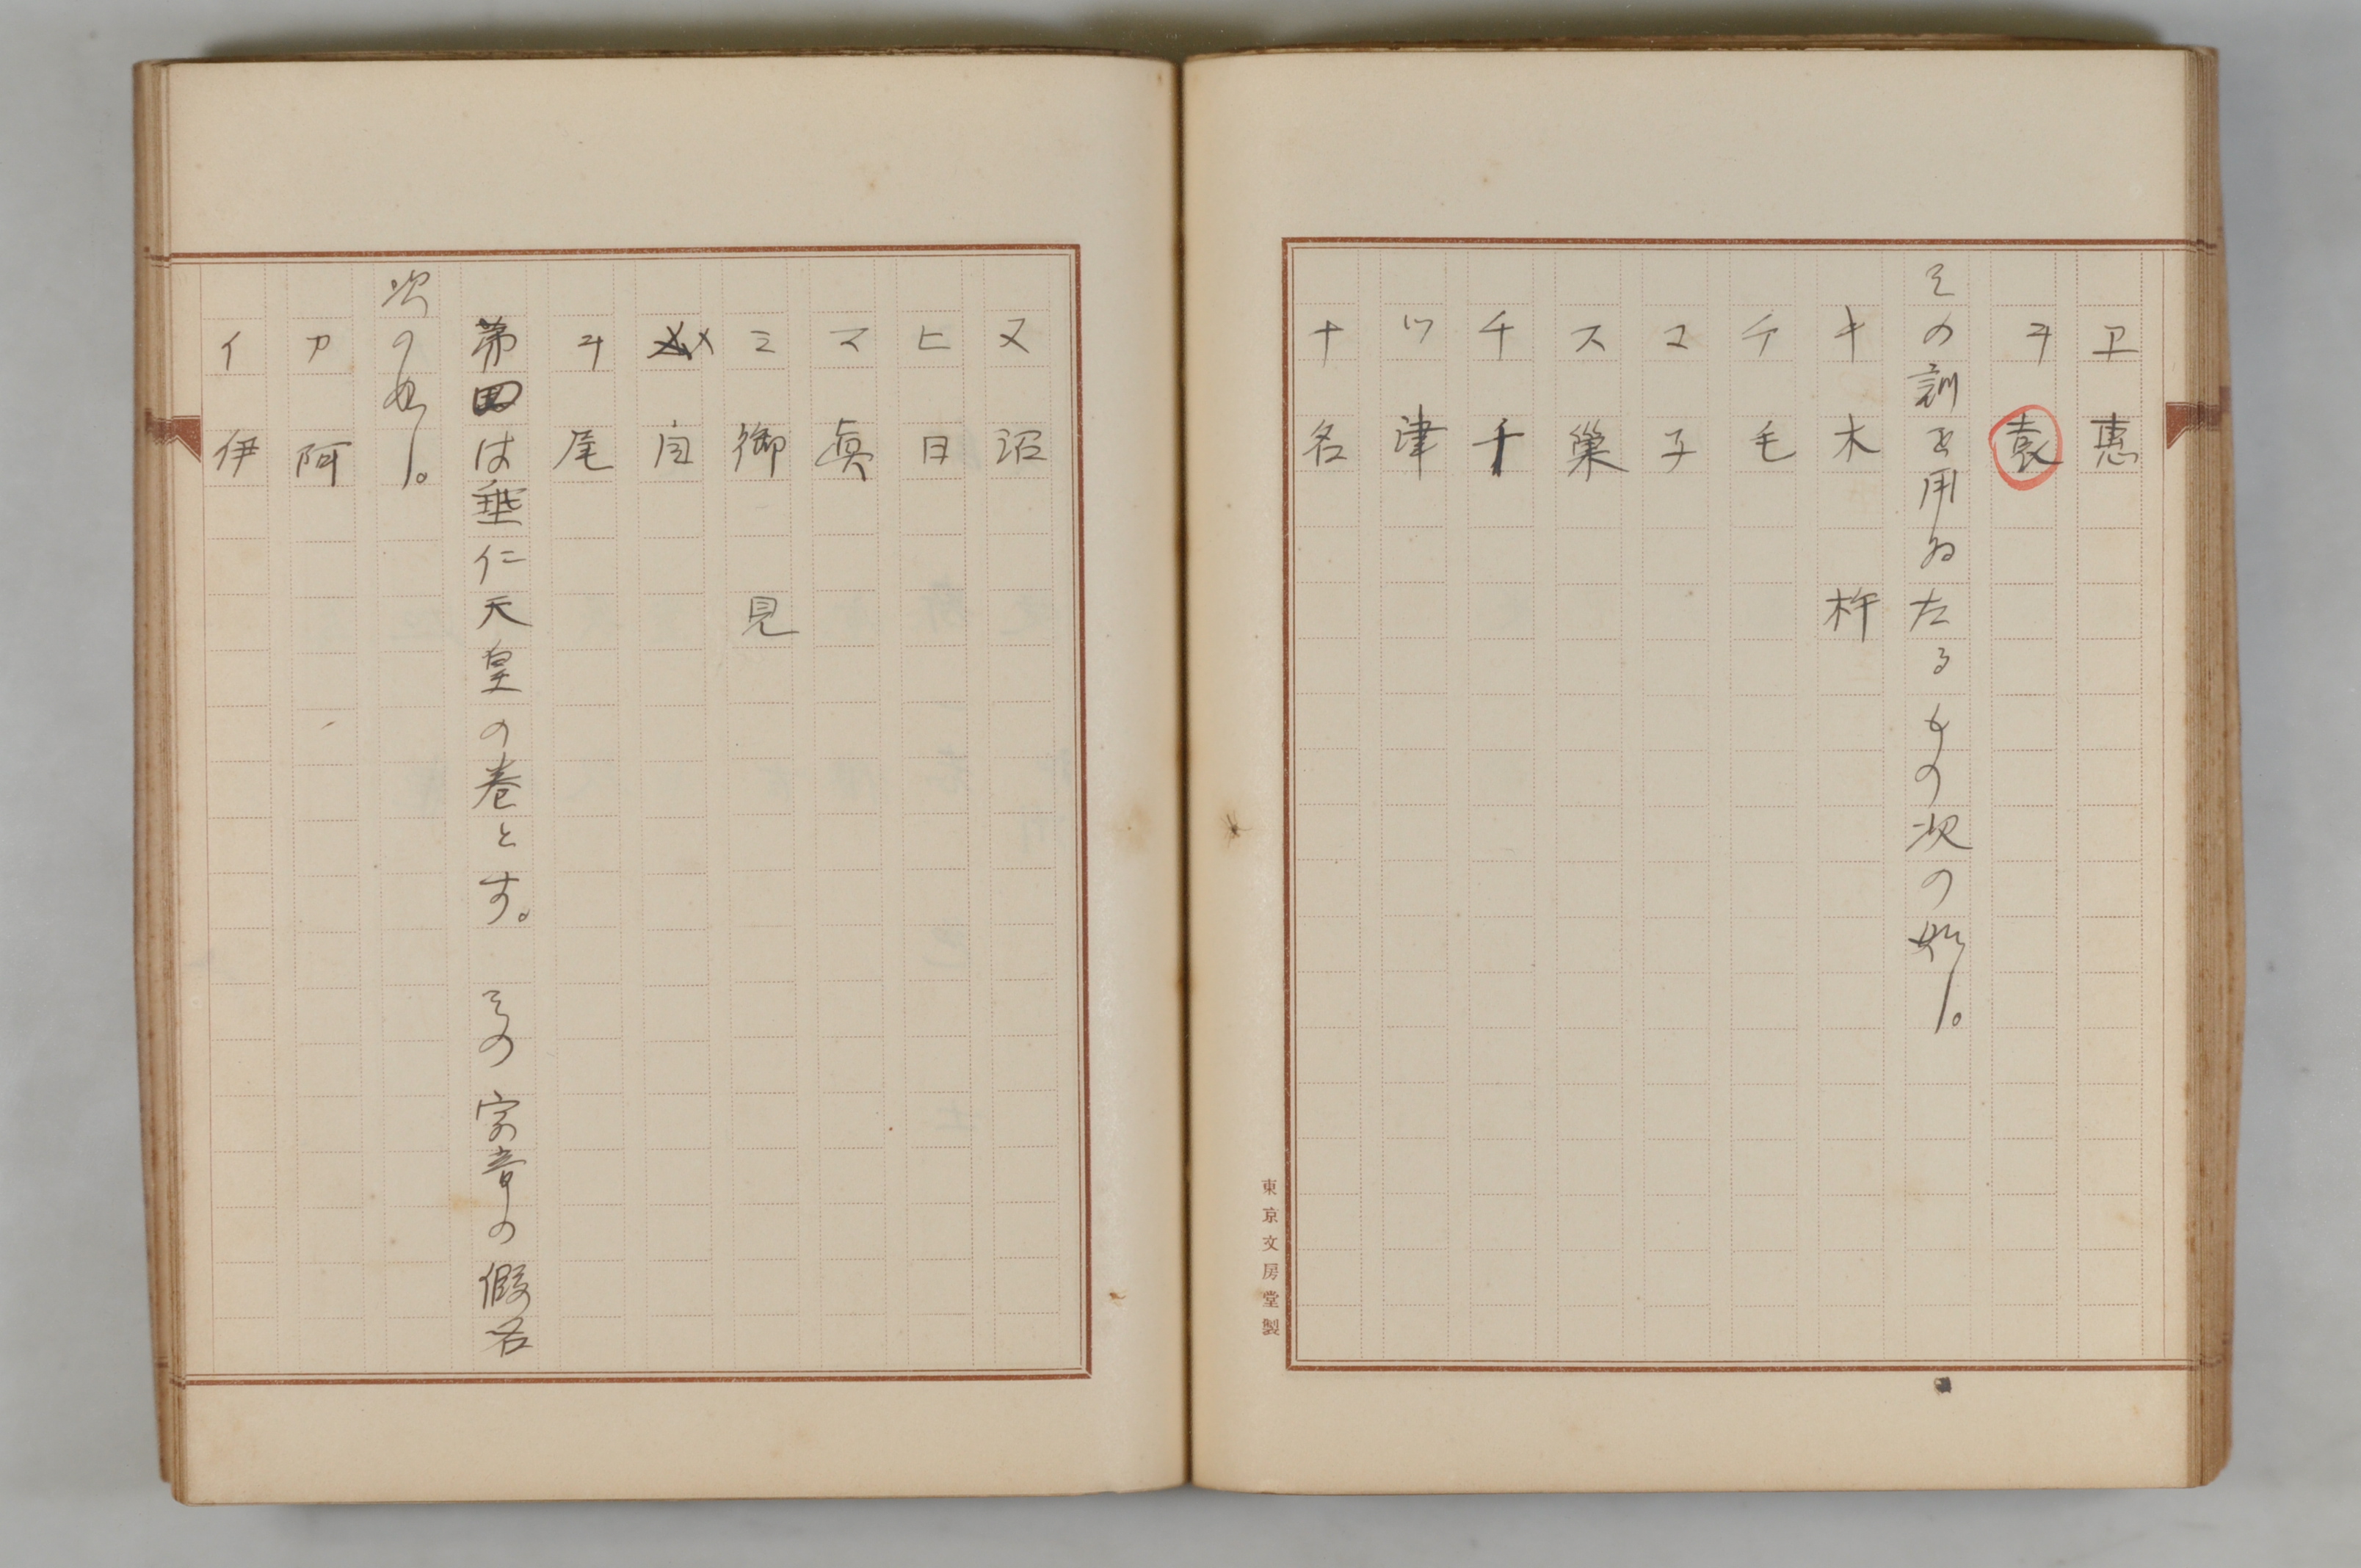 ヱ 惠
ヲ 袁
その訓を用ゐたるもの次の如し。
キ 木 杵
ケ 毛
コ 子
ス 巢
チ 千
ツ 津
ナ 名
東京文房堂製
ヌ 沼
ヒ 日
マ 眞
ミ 御 見
メ 目
ヲ 尾
第四は垂仁天皇の巻とす。 その字音の假名
次の如し。
ア 阿
イ 伊